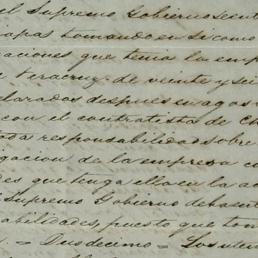 el Supremo Gobierno se en
apas tomando en sí como
aciones que tenia la emp
Veracruz de veinte y sei
larados despues en agos
con el contratista de Ch
da responsabilidad sobre
gacion de la empresa c
es que tenga ella en la a
Supremo Gobierno debaente
abilidades, puesto que tom
Duodecimo